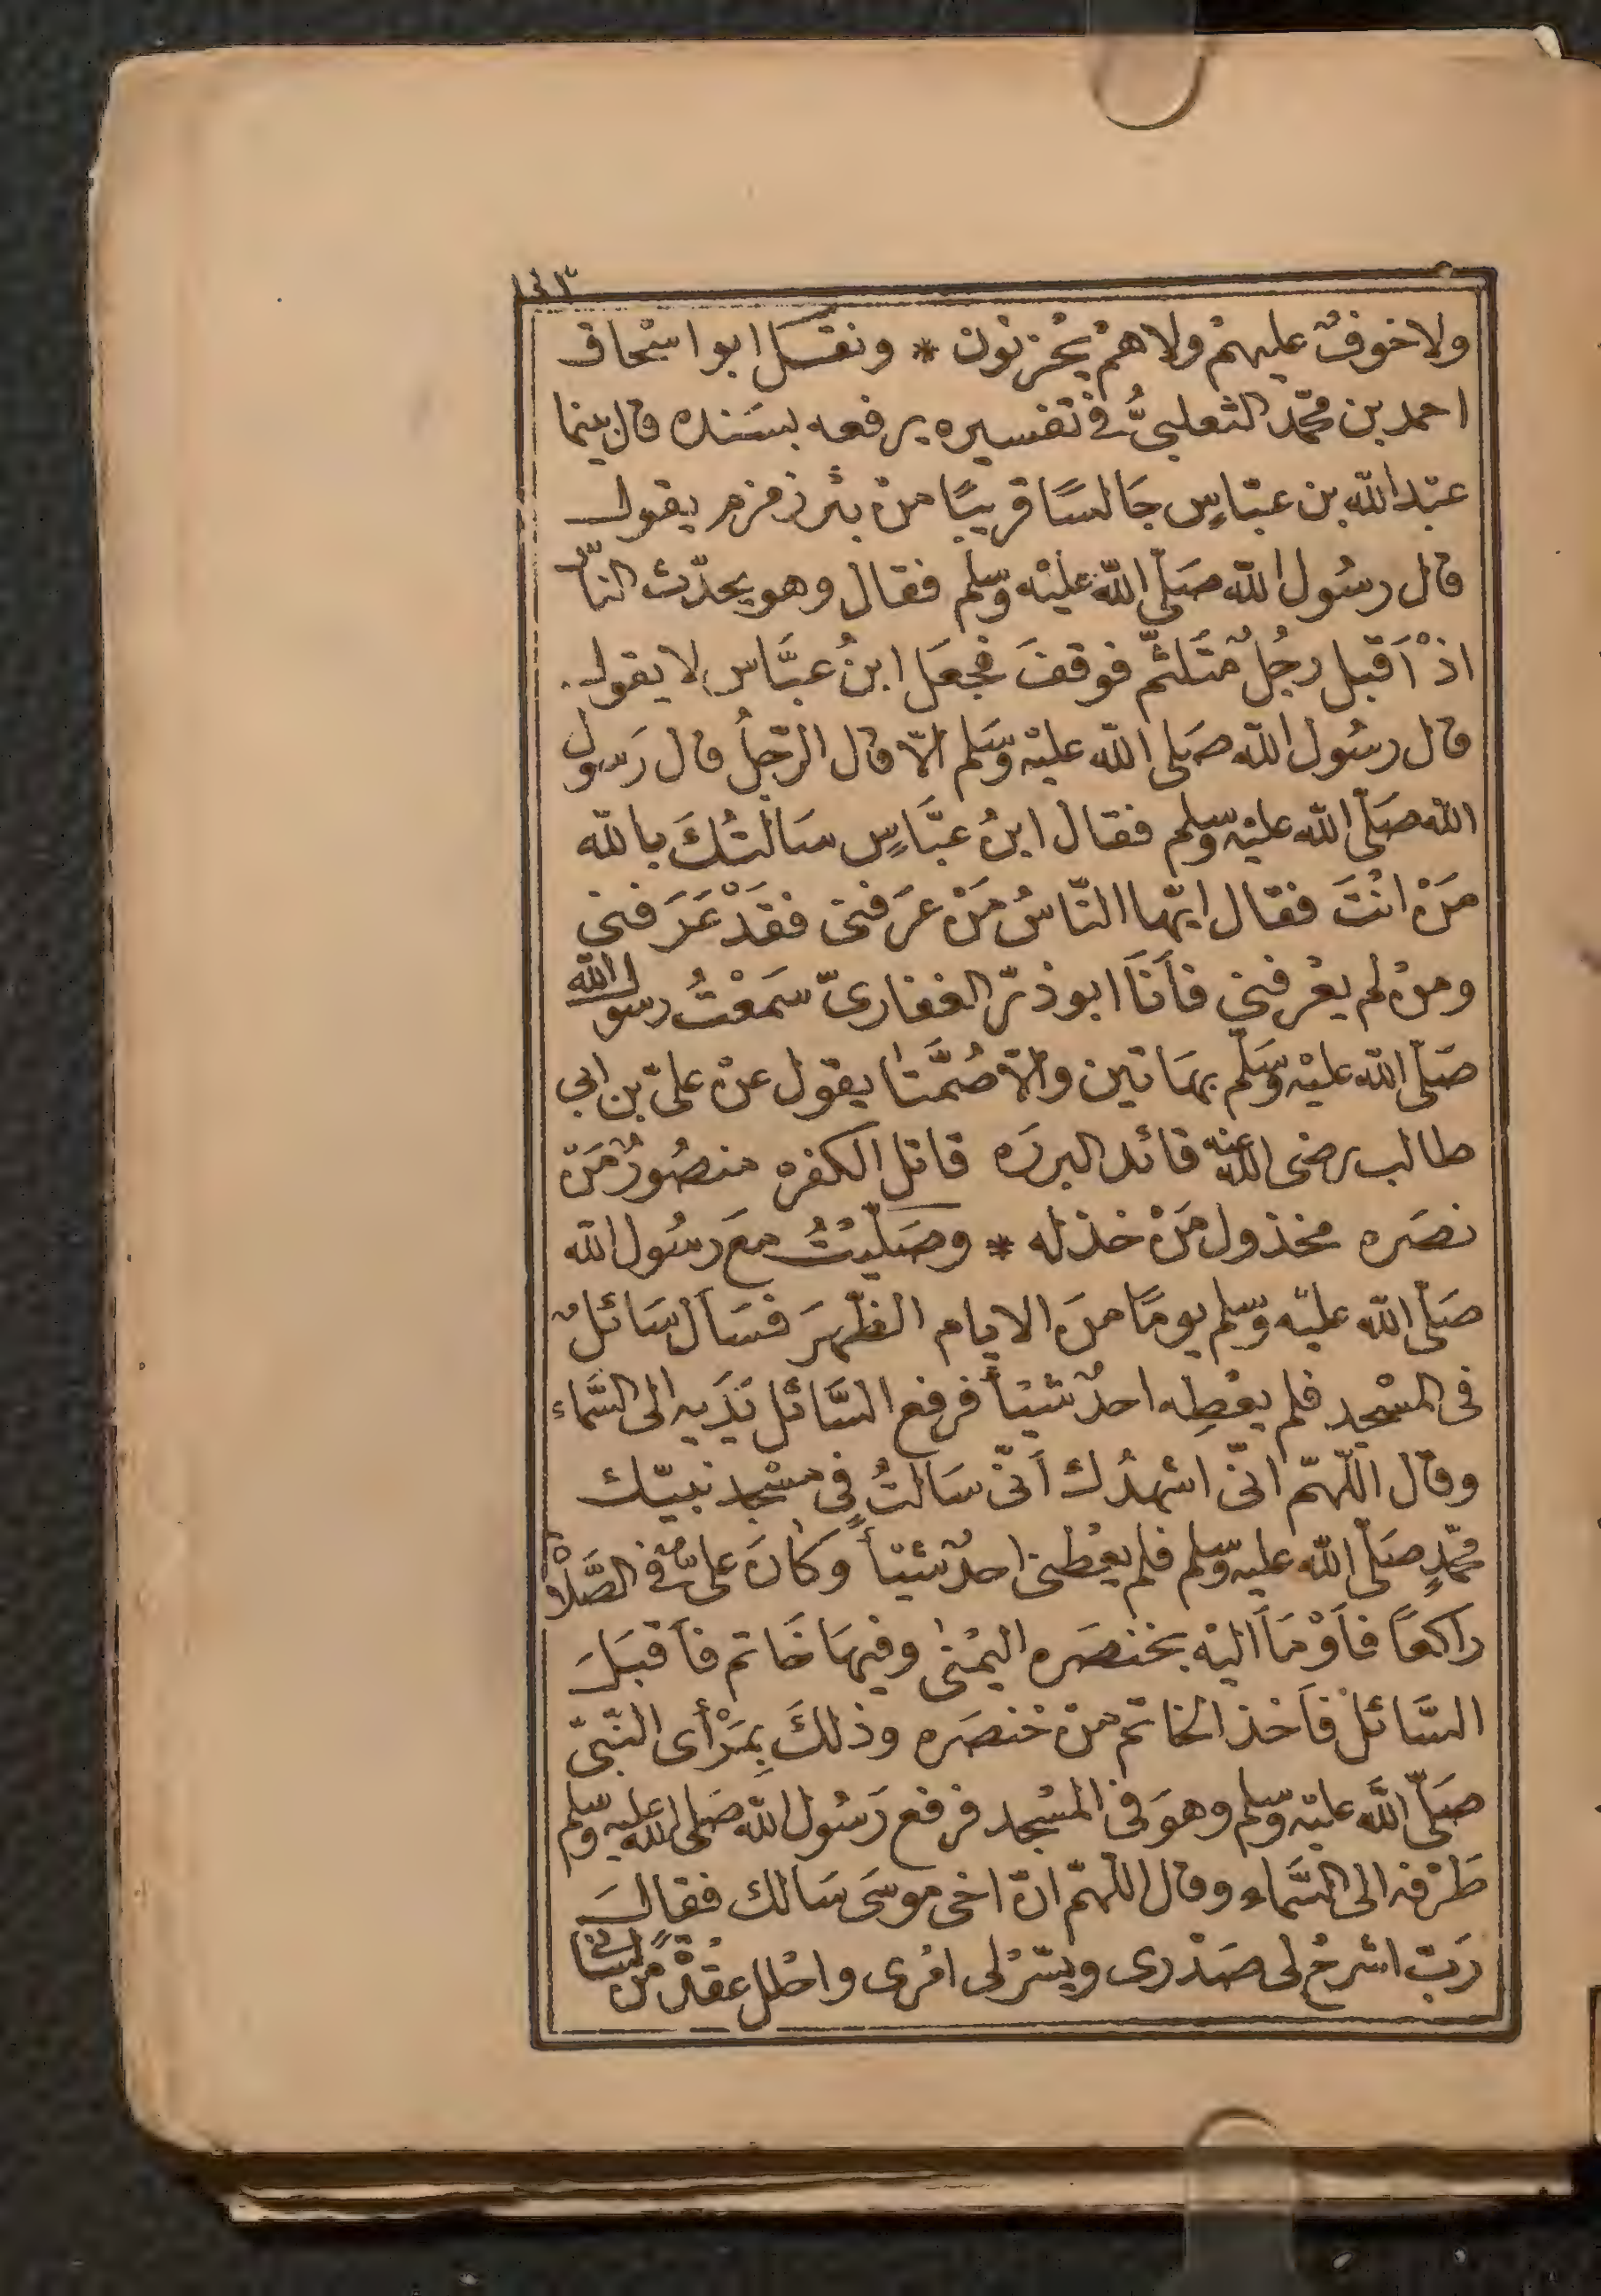 ولا خوفٌ عليهمْ ولا همْ يحْزنون * ونقل ابو اسْحاق
احمد بن محمّد الثعلبيُّ في تفسيره يرفعه بسَنده قال بينما
عبْد الله بن عبّاسٍ جَالسًا قريبًا منْ بئر زمزم يقول
قال رسُول الله صَلّى الله عليْه وسلّم فقال وهو يحدّث النّاس
اذْ أقبل رجُلٌ متَلثّم فوقفَ فجعَل ابنُ عبَّاس لا يقول
قال رسُول الله صَلى الله عليْه وسَلم الّا قال الرّجلُ قال رَسول
الله صَلّى الله عليْه وسلم فقال ابنُ عبَّاسٍ سَالتُكَ بالله
مَنْ انْتَ فقال ايّها النّاسُ مَنْ عرَفنى فقَدْ عَرَفنى
ومنْ لم يعْرفنى فأنَا ابو ذرّ الغفارىّ سَمعْتُ رسول الله
صَلّى الله عليْه وسَلّم بهَاتين والّا صُمَّتا يقول عنْ علىّ بن ابى
طالب رضى الله عنه قائد البرره قاتل الكفره منصُورٌ مَنْ
نصَره مخذول مَنْ خذله * وصَلّيْتُ معَ رسُول الله
صَلّى الله عليْه وسلّم يومًا منَ الايام الظّهرَ فسَأل سَائلٌ
فى المسْجد فلم يعْطِه احدٌ شيْئاً فرفع السَّائل يَدَيه الى السَّماء
وقال اللّهمّ انّى اشهدُك أنّى سَالتُ فى مسْجد نبيّك
محمّدٍ صَلّى الله عليه وسلّم فلم يعْطنى احدٌ شيْئاً وكانَ علىٌّ فى الصَّلاة
راكعًا فأوْمَأ اليْه بخنصَره اليُمْنى وفيهَا خَاتم فأقبَلَ
السَّائل فأخذ الخاتم منْ خنصَره وذلكَ بِمَرْأى النّبىّ
صَلّى الله عليْه وسلّم وهوَ فى المسْجد فرفع رَسُول الله صَلى الله عليه وسلم
طَرْفه الى السَّماء وقال اللهمّ انّ اخى موسَى سَالك فقالَ
رَبّ اشرحْ لى صَدْرى ويسّرْ لى امْرى واحْلل عقْدةً منْ لسانى